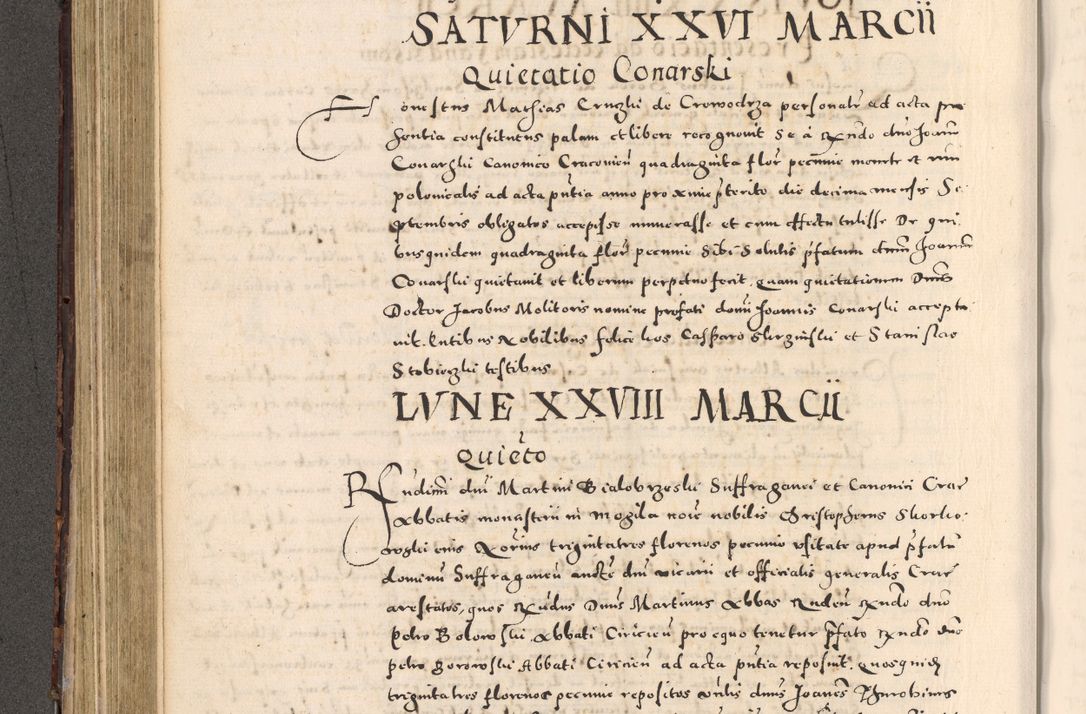 SATVRNI XXVI MARCII
Quietatio Conarski
Honestus Mathias Cruczki de Crowodrza personalr ad acta pre
sentia constitutus palam et libere recognovit se a Rndo dno Joann
Conarzki Canonico Cracovien quadraginta flor pecunie monete et nui
polonicalis ad acta pntia anno proxime pterito die decima mensis Se
ptembris obligatos accepisse numerasse et cum effectu tulisse De qui
busquidem quadraginta flor pecunie sibi solutis pfatum dnum Joannem
Conarski quietavit et liberum perpetuo fecit, quam quietationem Dnus
Doctor Jacobus Molitoris nomine prefati domi Joannis Conarski accepta
vit. Nobilibus felice Caspero et Stanislao
testibus
LVNE XXVIII MARCII
Quieto
Rndissimi dni Martini Bialobrzeski Suffraganei et Canonici Crac
Abbatis monasterii in Mogila noie nobilis Christopherus Skorko
wski eius trigintatres florenos pecunie usitate apud pfatum
dominum Suffraganeu aucte dni vicarii et officialis generalis Crac
arestatos, quos Rndus Dnus Martinus Abbas Rndo dno
Petro Borowski Abbati Ciricien pro equo tenetur pfato Rndo dno
petro Borowski Abbati Ciricien ad acta pntia reposuit. quosquid
trigintatres florenos pecunie repositos dnus Joanes